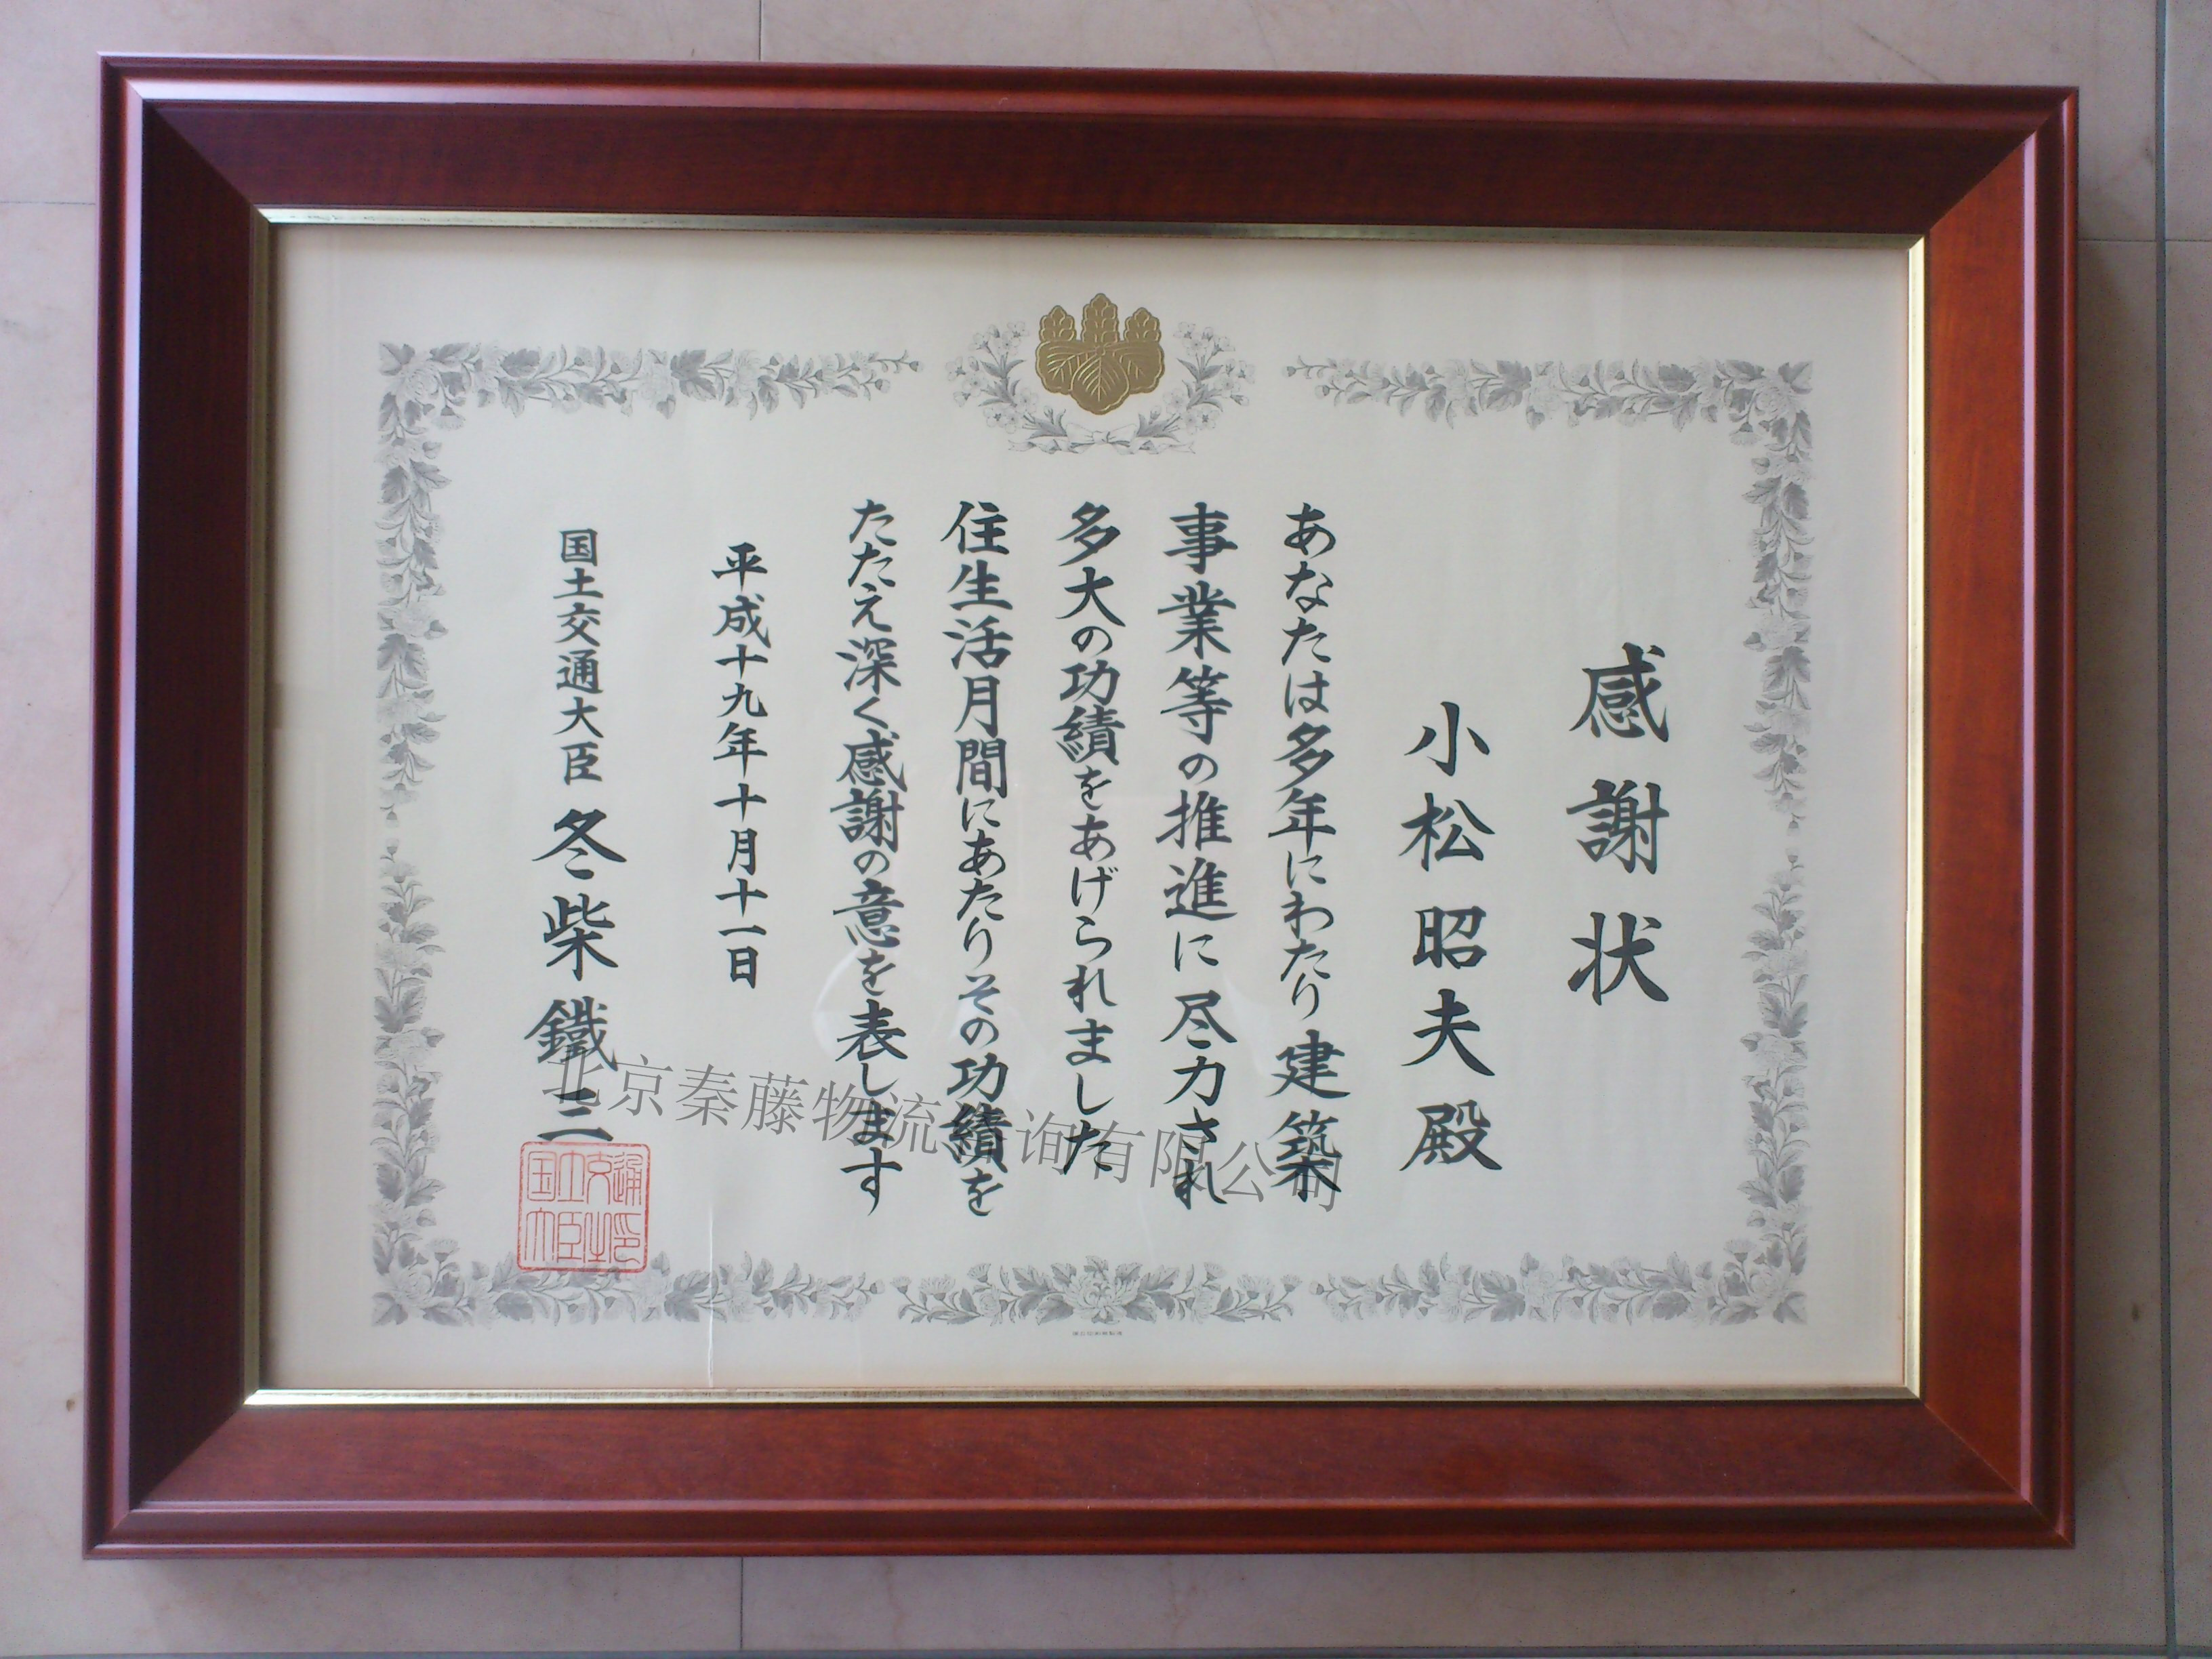 感謝状
小松昭夫殿
あなたは多年にわたり建築
事業等の推進に尽力され
多大の功績をあげられました
住生活月間にあたりその功績を
たたえ深く感謝の意を表します
平成十九年十月十一日
国土交通大臣 冬柴鐵三
国土交通大臣之印
北京秦藤物流咨询有限公司